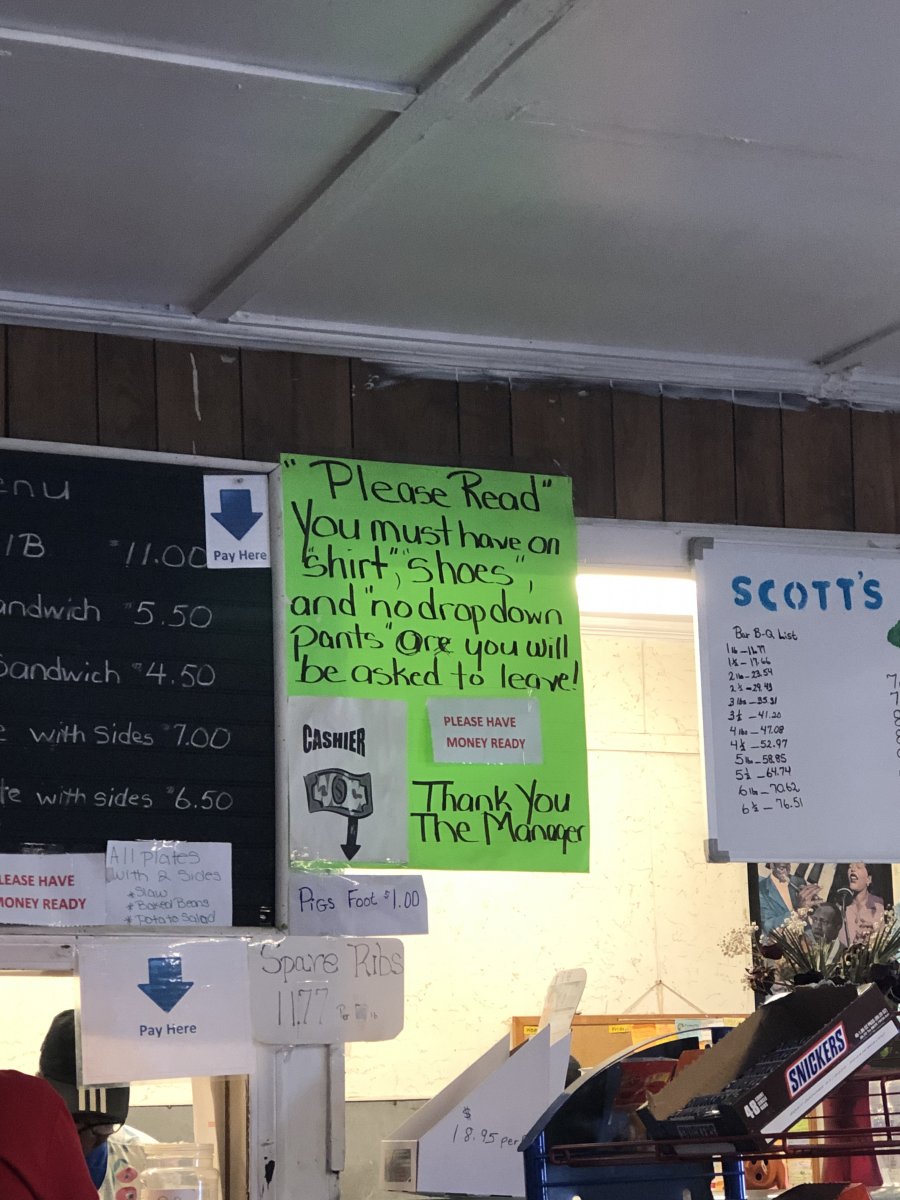 enu
1B $11.00
andwich $5.50
Sandwich $4.50
e with sides $7.00
te with sides $6.50
Pay Here
LEASE HAVE
MONEY READY
All Plates
with 2 Sides
*Slaw
*Baked Beans
*Potato Salad
Pay Here
"Please Read"
You must have on
"shirt", "shoes",
and "no drop down
pants" are you will
be asked to leave!
CASHIER
PLEASE HAVE
MONEY READY
Thank You
The Manager
Pigs Foot $1.00
Spare Ribs
11.77 Per lb
$
18.95 per
SCOTT'S
Bar B-Q List
1lb-11.77
1½-17.66
2lb-23.54
2½-29.43
3lbs-35.31
3½-41.20
4lbs-47.08
4½-52.97
5lb-58.85
5½-64.74
6lb-70.62
6½-76.51
SNICKERS
48